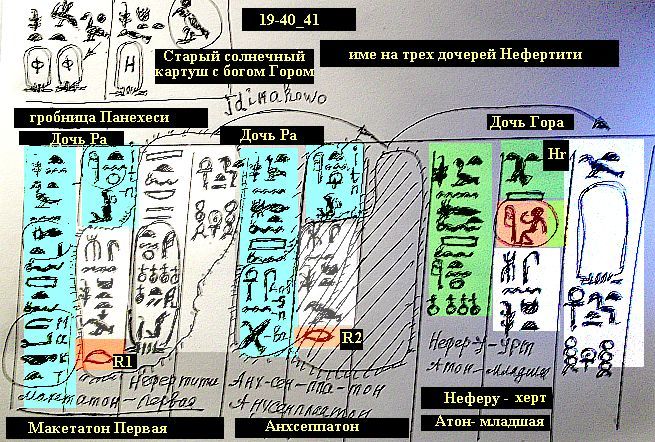 19-40_41
Старый солнечный
картуш с богом Гором
име на трех дочерей Нефертити
Ф Ф Н
гробница Панехеси
Дочь Ра
Дочь Ра
Дочь Гора
Hr
R1
R2
Макетатон - Первая
Нефертити
Анх-сен-ппа-тон
Анхсеппатон
Нефер-У-Урт
Атон-Младшая
Макетатон Первая
Анхсеппатон
Неферу - херт
Атон- младшая